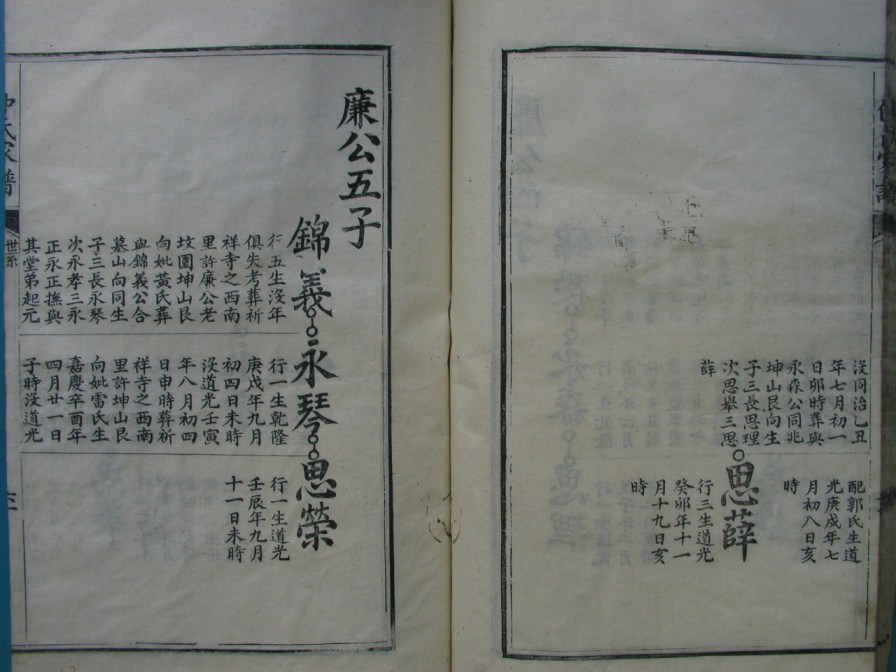 沒同治乙丑
年七月初一
日卯時葬與
永森公同兆
坤山艮向生
子三長思理
次思舉三思
薛
配郭氏生道
光庚戌年七
月初八日亥
時
思薛
行三生道光
癸卯年十一
月十九日亥
時
廉公五子
錦義
行五生沒年
俱失考葬祈
祥寺之西南
里許廉公老
坟圍坤山艮
向妣黃氏葬
與錦義公合
墓山向同生
子三長永琴
次永孝三永
正永正撫與
其堂弟起元
永琴
行一生乾隆
庚戌年九月
初四日未時
沒道光壬寅
年八月初四
日申時葬祈
祥寺之西南
里許坤山艮
向妣雷氏生
嘉慶辛酉年
四月廿一日
子時沒道光
思榮
行一生道光
壬辰年九月
十一日未時
世系